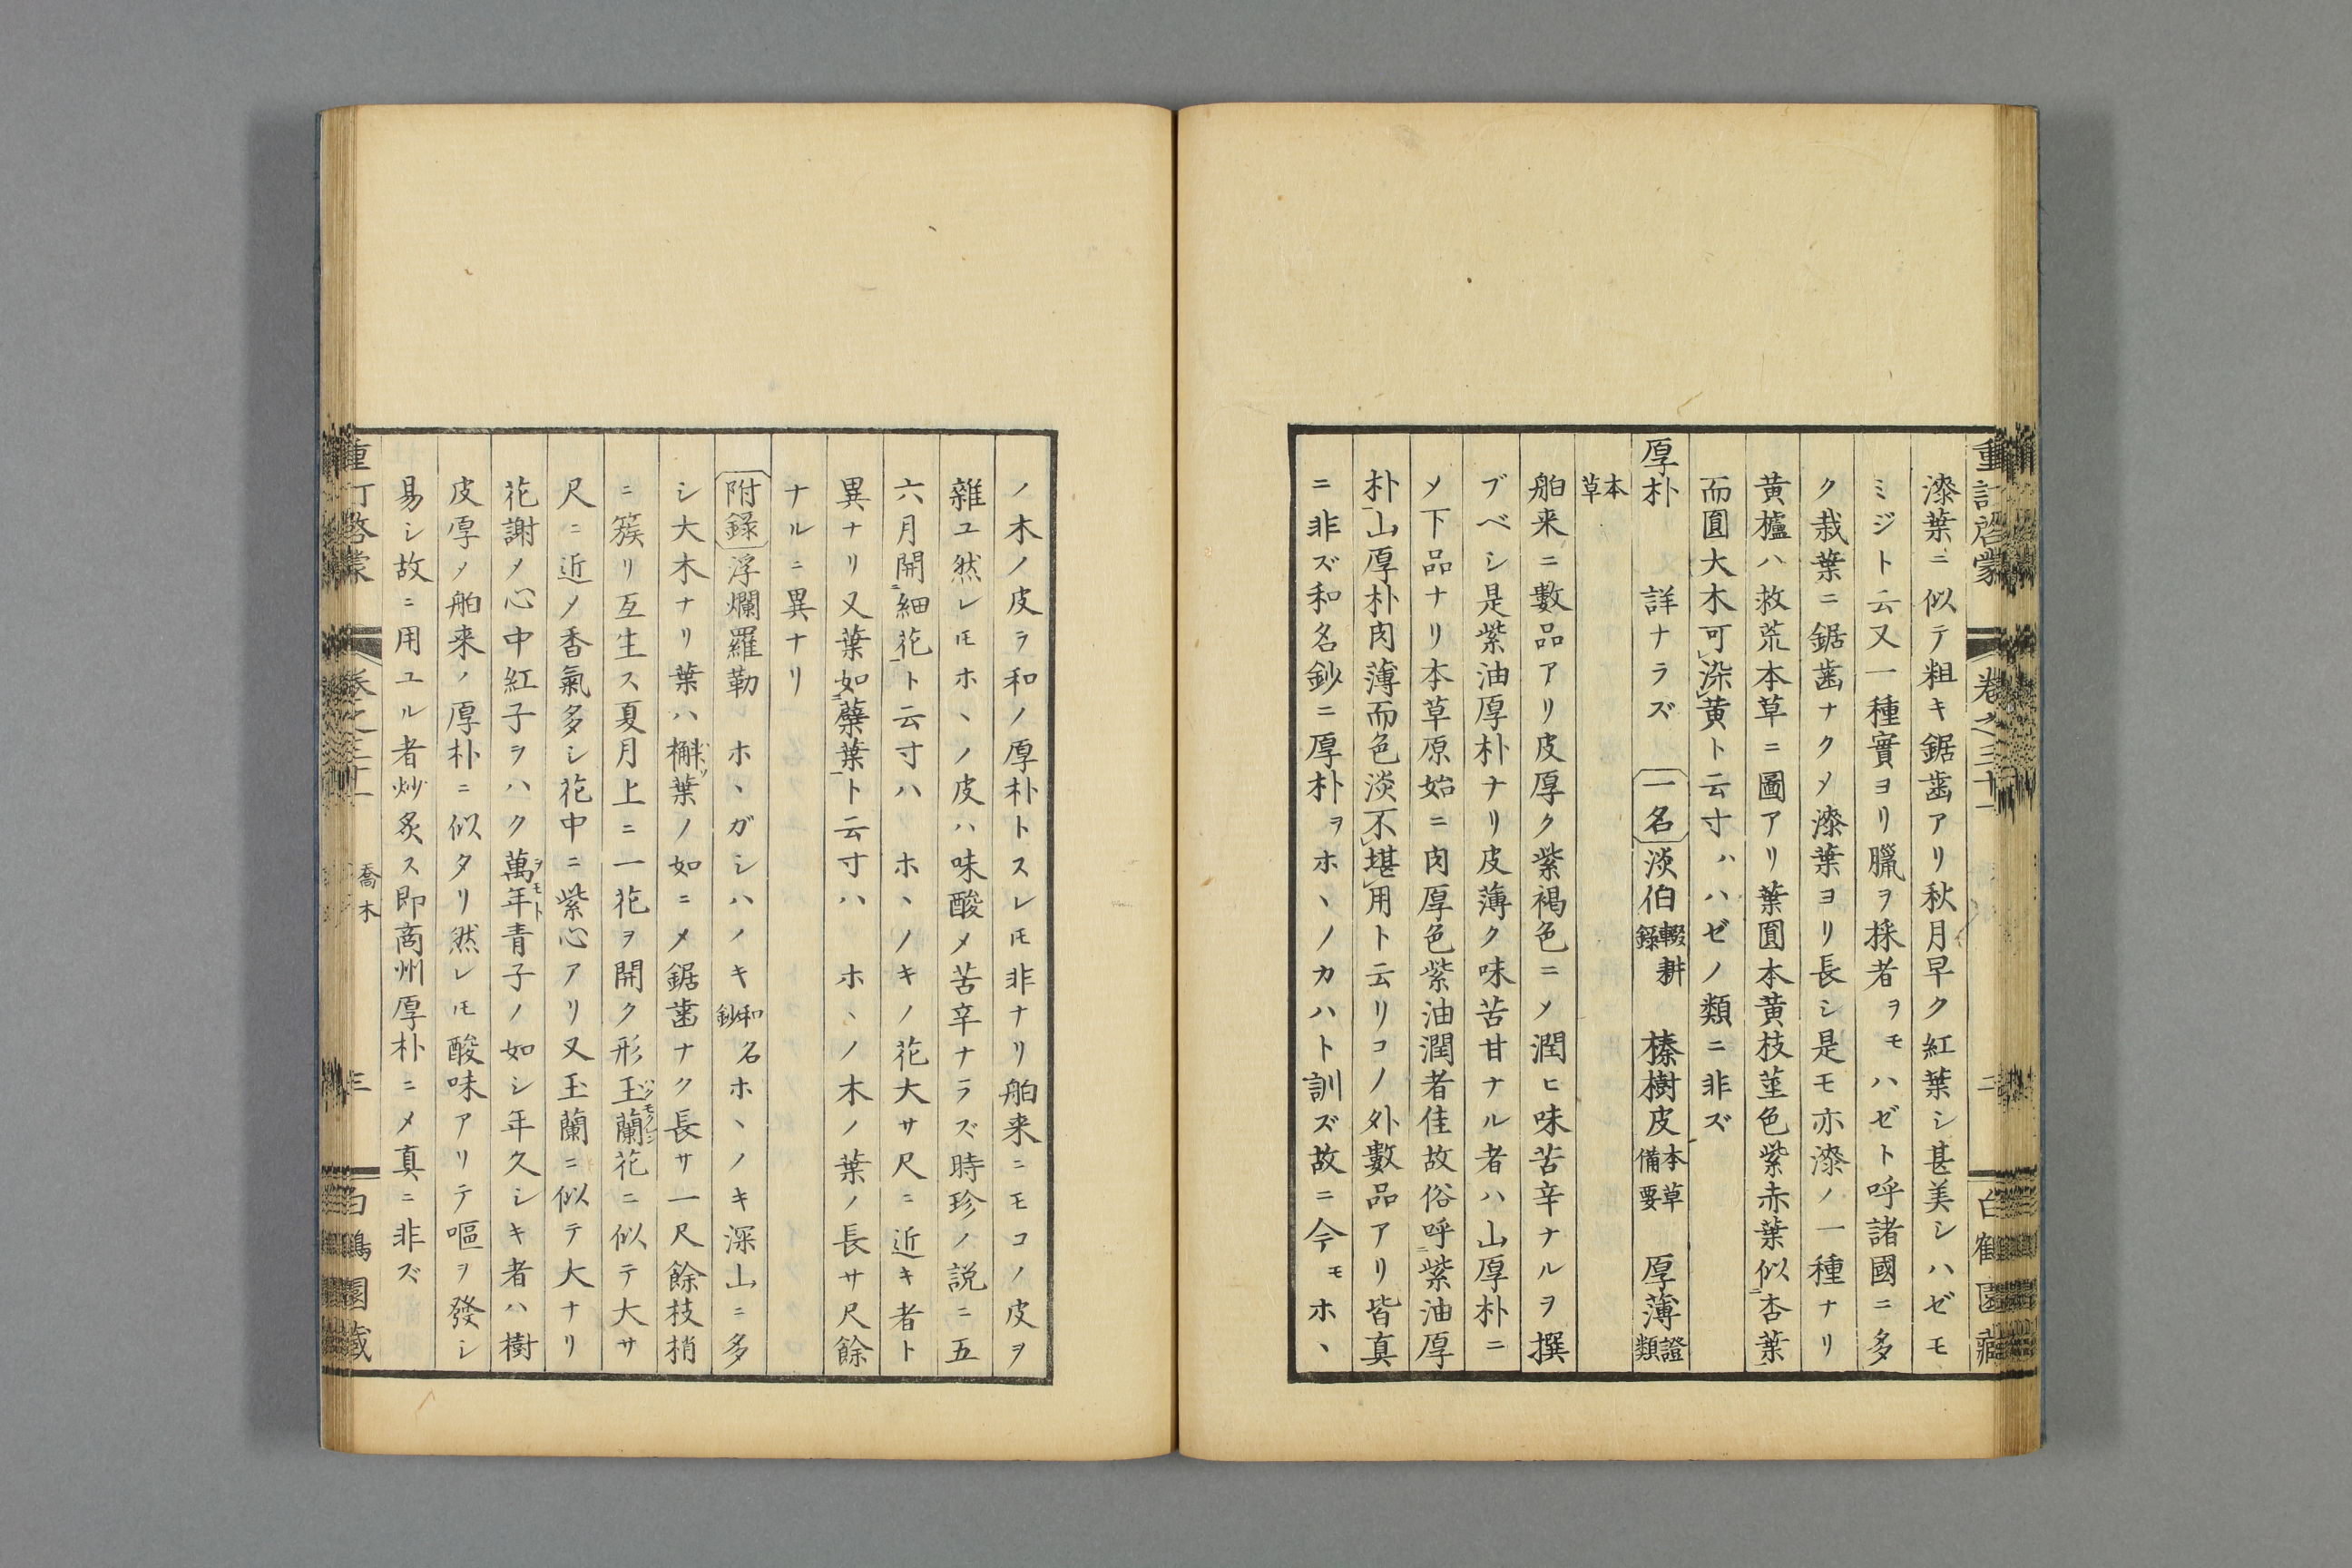 重訂啓蒙 卷之三十一 二 白鶴園藏
漆葉ニ似テ粗キ鋸齒アリ秋月早ク紅葉シ甚美シハゼモ
ミジト云又一種實ヨリ臘ヲ採者ヲモハゼト呼諸國ニ多
ク栽葉ニ鋸齒ナクメ漆葉ヨリ長シ是モ亦漆ノ一種ナリ
黄櫨ハ救荒本草ニ圖アリ葉圓本黄枝莖色紫赤葉似杏葉
而圓大木可染黄ト云寸ハハゼノ類ニ非ズ
厚朴 詳ナラズ 一名 淡伯輟耕録 榛樹皮本草備要 厚薄證類
本草
舶来ニ數品アリ皮厚ク紫褐色ニメ潤ヒ味苦辛ナルヲ撰
ブベシ是紫油厚朴ナリ皮薄ク味苦甘ナル者ハ山厚朴ニ
メ下品ナリ本草原始ニ肉厚色紫油潤者佳故俗呼紫油厚
朴山厚朴肉薄而色淡不堪用ト云リコノ外數品アリ皆真
ニ非ズ和名鈔ニ厚朴ヲホヽノカハト訓ズ故ニ今モホヽ
ノ木ノ皮ヲ和ノ厚朴トスレ𪜈非ナリ舶来ニモコノ皮ヲ
雜ユ然レ𪜈ホヽノ皮ハ味酸メ苦辛ナラズ時珍ノ説ニ五
六月開細花ト云寸ハ ホヽノキノ花大サ尺ニ近キ者ト
異ナリ又葉如蘗葉ト云寸ハ ホヽノ木ノ葉ノ長サ尺餘
ナルニ異ナリ
附録 浮爛羅勒 ホヽガシハノキ和名鈔 ホヽノキ深山ニ多
シ大木ナリ葉ハ槲葉ノ如ニメ鋸齒ナク長サ一尺餘枝梢
ニ簇リ互生ス夏月上ニ一花ヲ開ク形玉蘭花ニ似テ大サ
尺ニ近メ香氣多シ花中ニ紫心アリ又玉蘭ニ似テ大ナリ
花謝メ心中紅子ヲハク萬年青子ノ如シ年久シキ者ハ樹
皮厚メ舶来ノ厚朴ニ似タリ然レ𪜈酸味アリテ嘔ヲ發シ
易シ故ニ用ユル者炒炙ス即商州厚朴ニメ真ニ非ズ
重訂啓蒙 卷之三十一 喬木 三 白鶴園藏